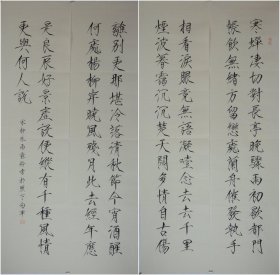 寒蟬凄切對長亭晚驟雨初歇都門
帳飲無緒方留戀處蘭舟催發執手
相看淚眼竟無語凝噎念去去千里
煙波暮靄沉沉楚天闊多情自古傷
離別更那堪冷落清秋節今宵酒醒
何處楊柳岸曉風殘月此去經年應
是良辰好景虛設便縱有千種風情
更與何人說
宋柳永雨霖鈴